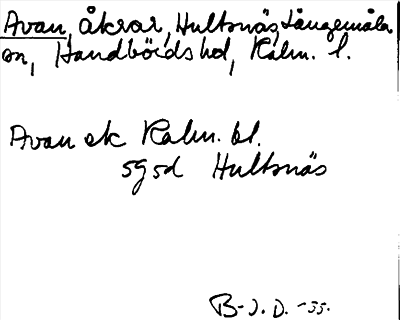 Avan, åkrar, Hultsnäs, Långemåla
sn, Handbörds hd, Kalm. l.
Avan ek Kalm. bl.
sgsd Hultsnäs
B-J. D. -35.